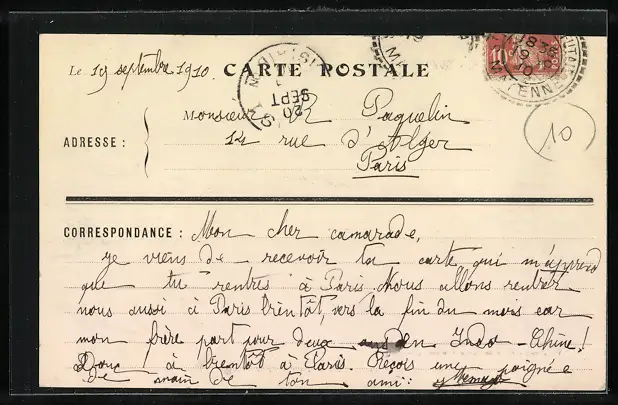 Le 19 septembre 1910.
CARTE POSTALE
Monsieur R Paquelin
ADRESSE :
14 rue d'Alger
Paris
20 SEPT
10
CORRESPONDANCE : Mon cher camarade,
je viens de recevoir ta carte qui m'apprend
que tu rentres à Paris. Nous allons rentrer
nous aussi à Paris bientôt, vers la fin du mois car
mon frère part pour deux ans en Indo-Chine!
Donc à bientôt à Paris. Reçois une poignée
de main de ton ami: